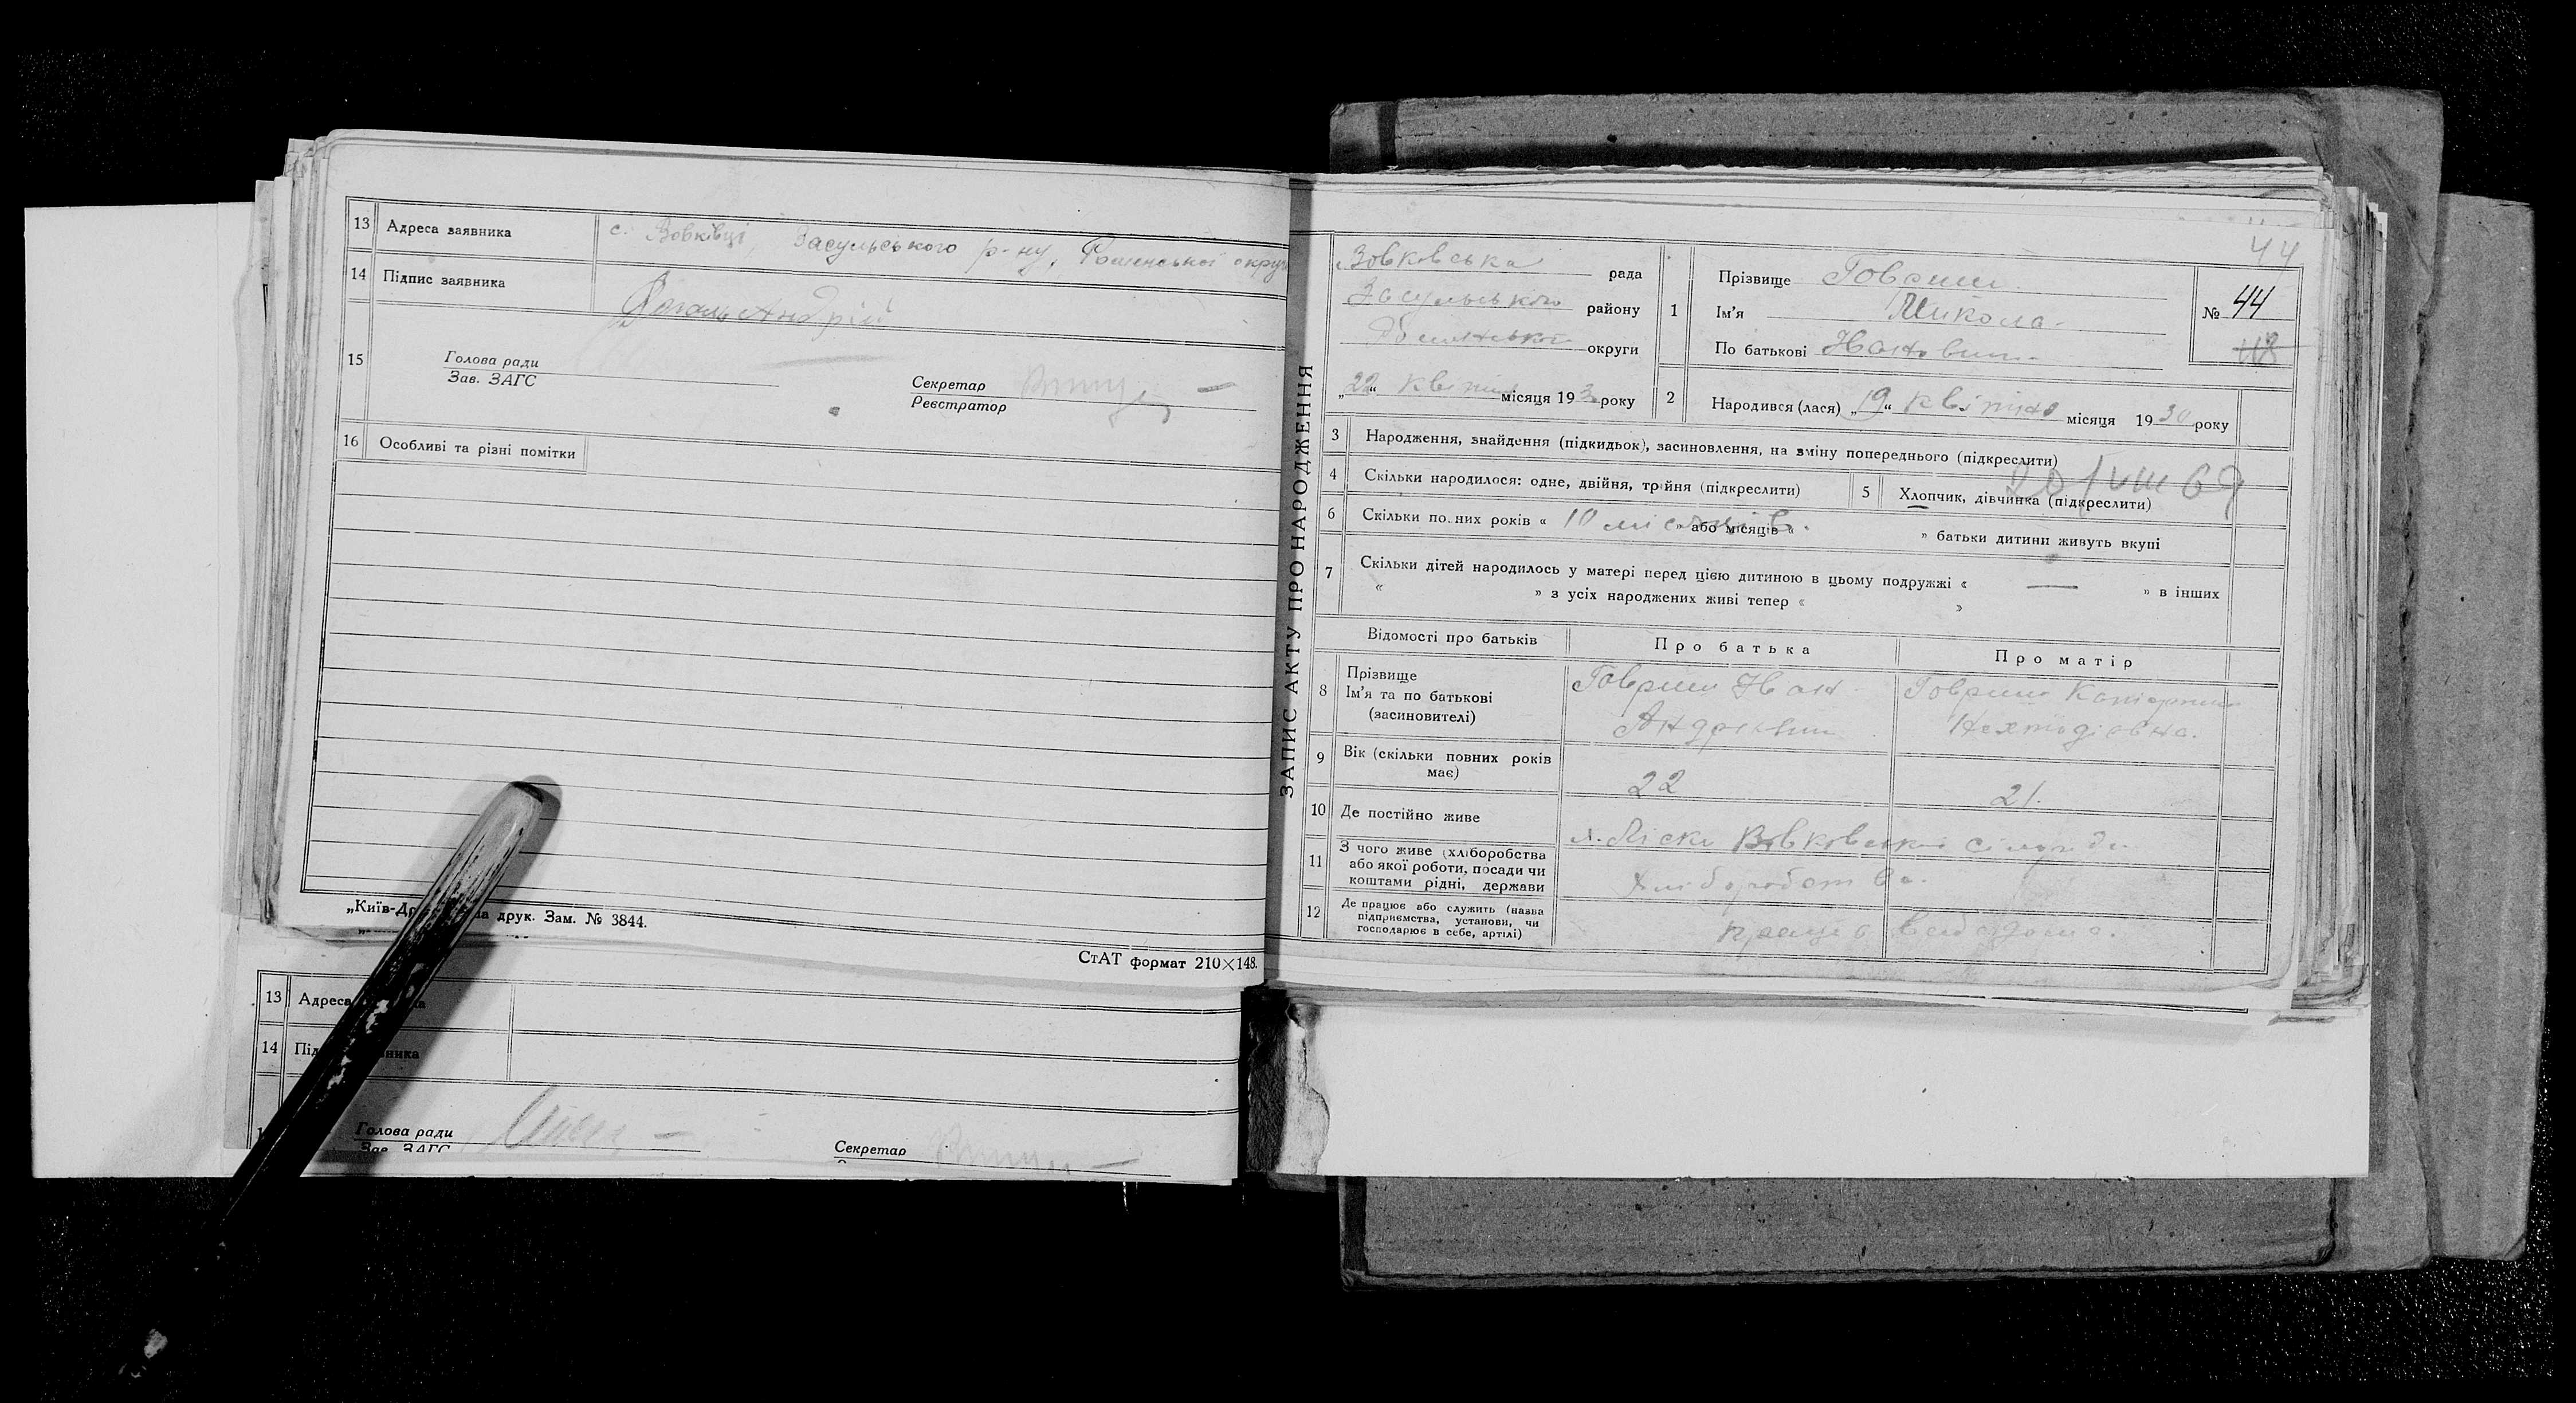 13 Адреса заявника с. Вовківці, Засульського р-ну, Роменської округи
14 Підпис заявника Рогаль Андрій
15 Голова ради
Зав. ЗАГС
Секретар
Реєстратор
16 Особливі та різні помітки
„Київ-Др друк. Зам. № 3844.
СтАТ формат 210×148.
13 Адреса
14 Під ника
Голова ради
Зав. ЗАГС
Секретар
ЗАПИС АКТУ ПРО НАРОДЖЕННЯ
44
Вовковська рада
Засульського району
Роменської округи
„22“ квітня місяця 193 року
1 Прізвище Говриш
Ім'я Микола
По батькові Іванович
№ 44
48
2 Народився (лася) „19“ квітня місяця 1930 року
3 Народження, знайдення (підкидьок), засиновлення, на зміну попереднього (підкреслити)
4 Скільки народилося: одне, двійня, трійня (підкреслити)
5 Хлопчик, дівчинка (підкреслити)
VIII 69
6 Скільки повних років « 10 місяців » або місяців « » батьки дитини живуть вкупі
7 Скільки дітей народилось у матері перед цією дитиною в цьому подружжі « — » в інших
« » з усіх народжених живі тепер « »
Відомості про батьків Про батька Про матір
8 Прізвище
Ім'я та по батькові
(засновителі)
Говриш Іван
Андрієвич
Говриш
9 Вік (скільки повних років має) 22 21.
10 Де постійно живе х. Піски Вовковської сільради
11 З чого живе (хліборобства
або якої роботи, посади чи
коштами рідні, держави
Хліборобства.
12 Де працює або служить (назва
підприємства, установи, чи
господарює в себе, артілі)
працює